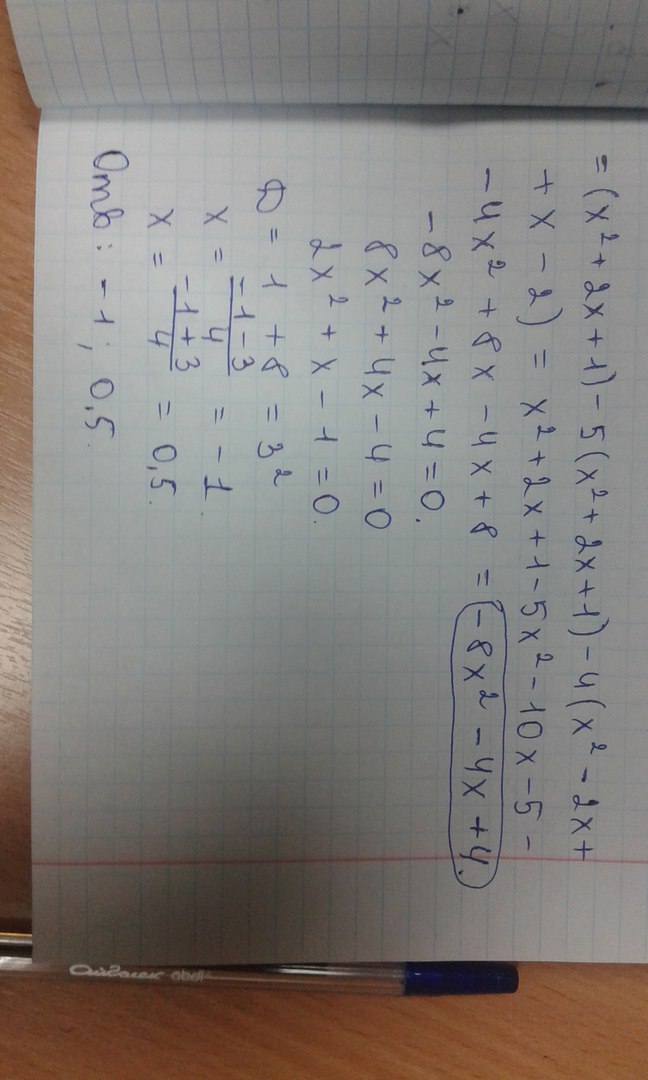 = (x² + 2x + 1) - 5(x² + 2x + 1) - 4(x² - 2x +
+ x - 2) = x² + 2x + 1 - 5x² - 10x - 5 -
- 4x² + 8x - 4x + 8 = - 8x² - 4x + 4.
- 8x² - 4x + 4 = 0.
8x² + 4x - 4 = 0
2x² + x - 1 = 0.
D = 1 + 8 = 3²
x = \frac{-1-3}{4} = -1.
x = \frac{-1+3}{4} = 0,5.
Отв: -1; 0,5.